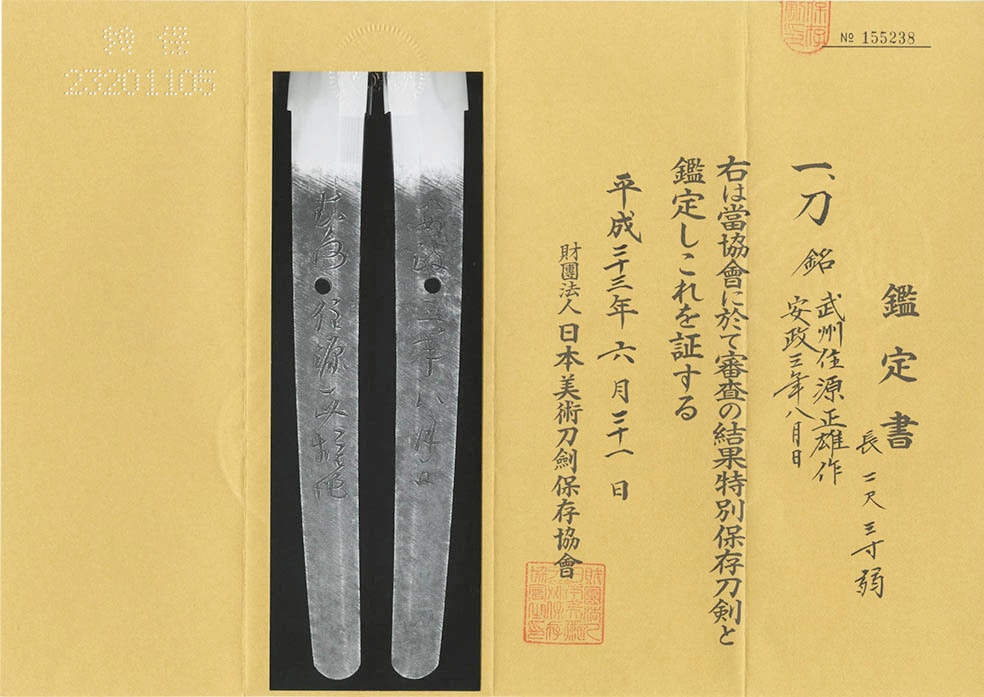 特保
23201105
№ 155238
鑑定書
長二尺三寸弱
一、刀 銘 武州住源正雄作
安政三年八月日
右は當協會に於て審査の結果特別保存刀剣と
鑑定しこれを証する
平成二十三年六月二十一日
財團法人日本美術刀劍保存協會
安政三年八月日
武州住源正雄作